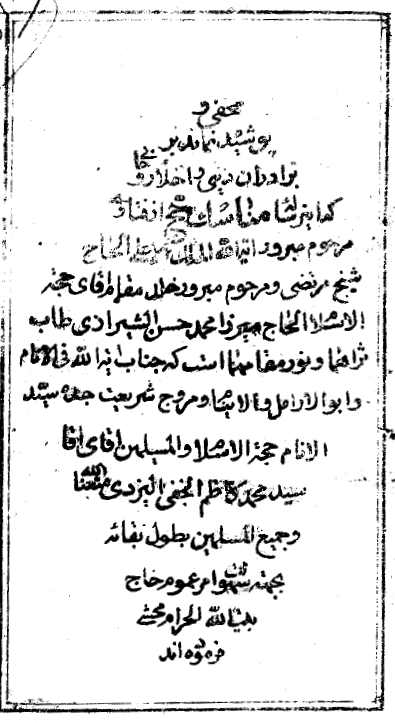 مخفی و
پوشیده نماند بر
برادران دینی و اخلاء روحانی
که این رساله مناسک حج از فتاوی
مرحوم مبرور آیة الله الحاج
شیخ مرتضی و مرحوم مبرور خلد مقام آقای حجة
الاسلام الحاج میرزا محمد حسن الشیرازی طاب
ثراهما و نور مقامهما است که جناب آیة الله فی الانام
و ابو الارامل و الایتام و مروج شریعت جده سید
الانام حجة الاسلام و المسلمین آقای آقا
سید محمد کاظم النجفی الیزدی متعنا الله
و جمیع المسلمین بطول بقائه
بجهة عموم حاج
بیت الله الحرام محشی
فرموده اند